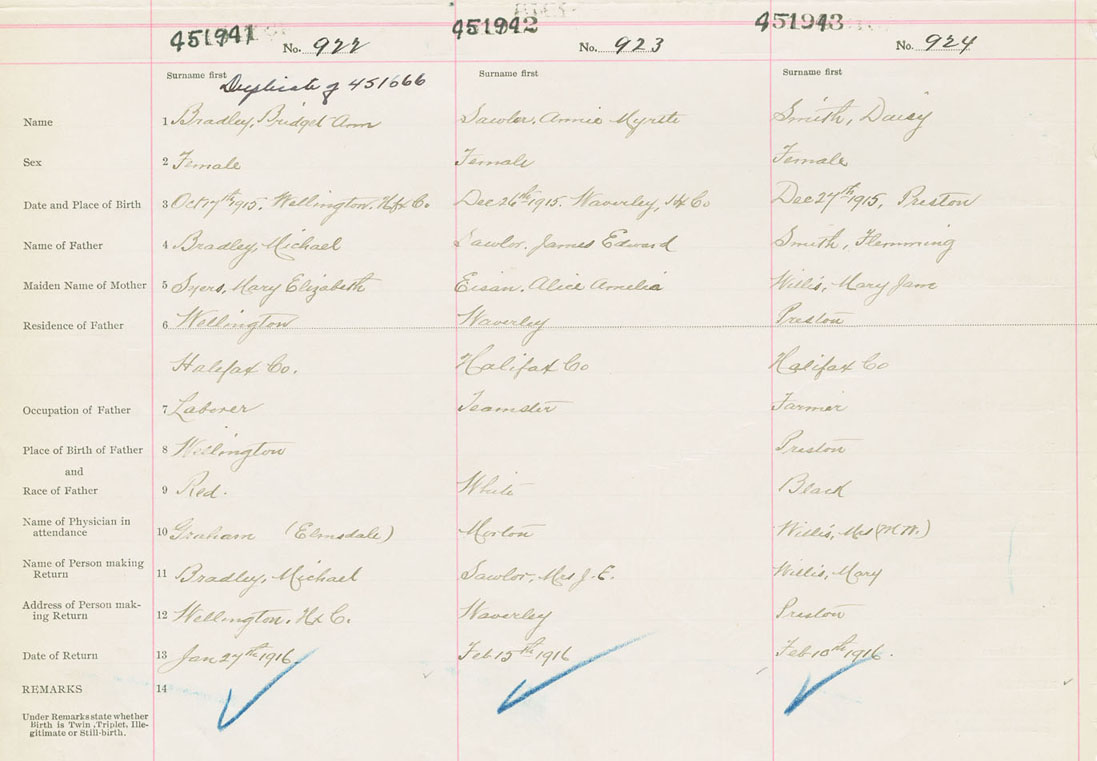 451941 451942 451943
No. 922 No. 923 No. 924
Surname first Surname first Surname first
Duplicate of 451666
Name 1 Bradley, Bridget Ann Sawler, Annie Myrtle Smith, Daisy
Sex 2 Female Female Female
Date and Place of Birth 3 Oct 7th 1915. Wellington. Hfx Co. Dec 26th 1915. Waverley, Hx Co Dec 27th 1915, Preston
Name of Father 4 Bradley, Michael Sawlor, James Edward Smith, Flemming
Maiden Name of Mother 5 Syers, Mary Elizabeth Eisan, Alice Amelia Willis, Mary Jane
Residence of Father 6 Wellington Waverley Preston
Halifax Co. Halifax Co Halifax Co
Occupation of Father 7 Laborer Teamster Farmer
Place of Birth of Father 8 Wellington Preston
and
Race of Father 9 Red. White Black
Name of Physician in
attendance 10 Graham (Elmsdale) Morton Willis, Mrs (M.W.)
Name of Person making
Return 11 Bradley, Michael Sawlor, Mrs J. E. Willis, Mary
Address of Person mak-
ing Return 12 Wellington. Hx C. Waverley Preston
Date of Return 13 Jan 27th 1916. Feb 15th 1916 Feb 10th 1916.
REMARKS 14
Under Remarks state whether
Birth is Twin, Triplet, Ille-
gitimate or Still-birth.